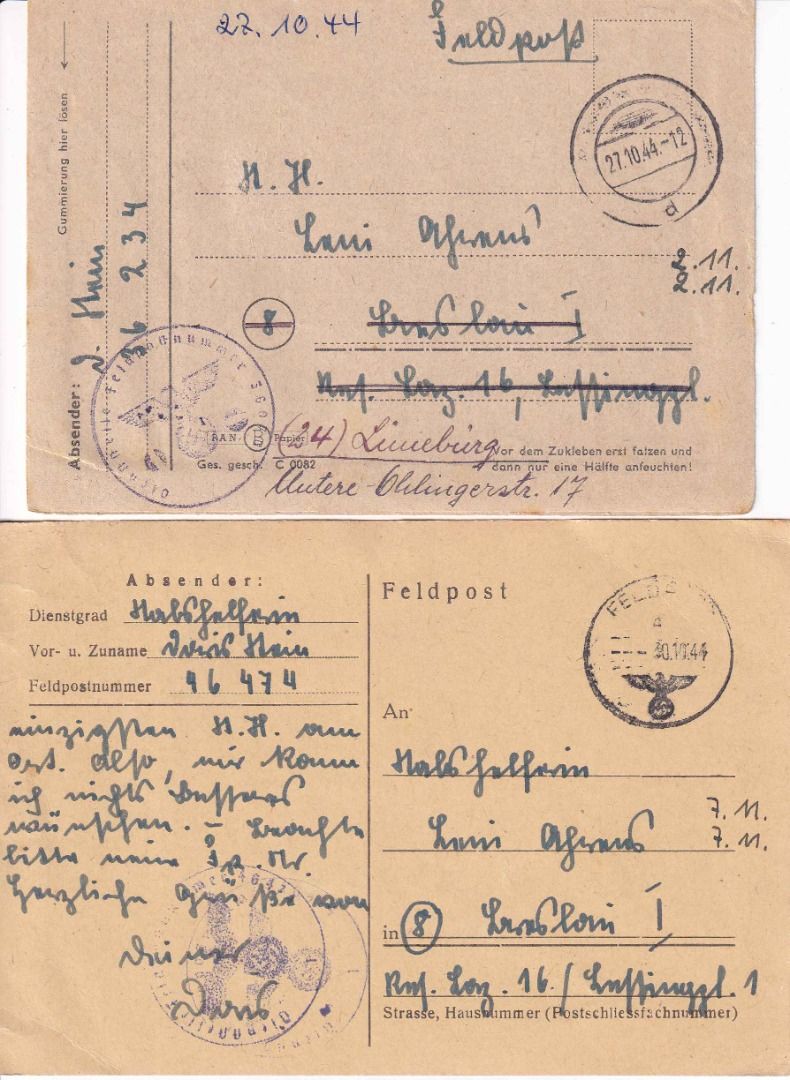 27.10.44
Feldpost
Gummierung hier lösen
27.10.44.-12
d
St. H.
Leni Ahrens
2.11.
2.11.
8 Breslau I
Res. Laz. 16, Lessingpl.
Absender: D. Stein
36 234
Dienststelle Feldpostnummer
RAN. B Papier
Ges. gesch. C 0082
(24) Lüneburg
Untere Ohlingerstr. 17
Vor dem Zukleben erst falzen und
dann nur eine Hälfte anfeuchten!
Absender:
Dienstgrad Stabshelferin
Vor- u. Zuname Doris Stein
Feldpostnummer 46 474
einzigsten St. H. am
Ort. Also, mir kann
ich nichts Besseres
wünschen. – Beachte
bitte meine Fp. Nr.
Herzliche Grüße von
Deiner
Doris
Feldpost
a
30.10.44
An
Stabshelferin
Leni Ahrens
7.11.
7.11.
in 8 Breslau I
Res. Laz. 16 / Lessingpl. 1
Strasse, Hausnummer (Postschliessfachnummer)